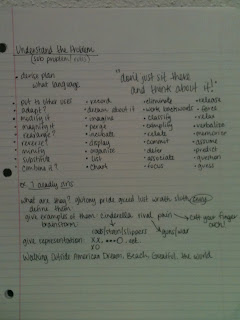 Understand the Problem
(see problem/rules)
• devise plan
what language
"don't just sit there and think about it!"
• put to other uses • record • eliminate • release
• adapt? • dream about it • work backwards •
• modify it • imagine • classify • relax
• magnify it • purge • exemplify • verbalize
• rearrange? • incubate • relate • memorize
• reverse? • display • commit • assume
• minify • organize • defer • predict
• substitute • list • associate • question
• combine it? • chart • focus • guess
ex. 7 deadly sins
what are they? gluttony pride greed lust wrath sloth envy
define them
give examples of them: cinderella rival, pain → cut your finger ouch!
brainstorm: guns/war
give representation:
Walking Outside American Dream, Beach, Graceful, the world